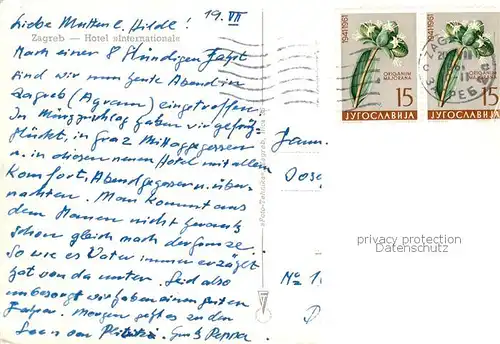 Liebe Mutter u. Hilde! 19. VII
Zagreb — Hotel »International«
Nach einer 8 stündigen Fahrt
sind wir nun heute Abend in
Zagreb (Agram) eingetroffen.
In Mürzzuschlag haben wir gefrüh-
stückt, in Graz Mittaggegessen
u. in diesen neuen Hotel mit allem
Komfort, Abendgegessen u. über-
nachten. Man kommt aus
dem Staunen nicht heraus
schon gleich nach der Grenze
So wie es Vater immer erzählt
hat von da unten. Seid also
unbesorgt wir haben einen guten
Fahrer. Morgen geht es zu den
Seen von Plitvice. Gruß Pepper
1941·1961
ORIGANUM
MAJORANA
15
ЈУГОСЛАВИЈА
1941·1961
ORIGANUM
MAJORANA
15
JUGOSLAVIJA
ZAGREB
ЗАГРЕБ
Fam.
No 1
privacy protection
Datenschutz